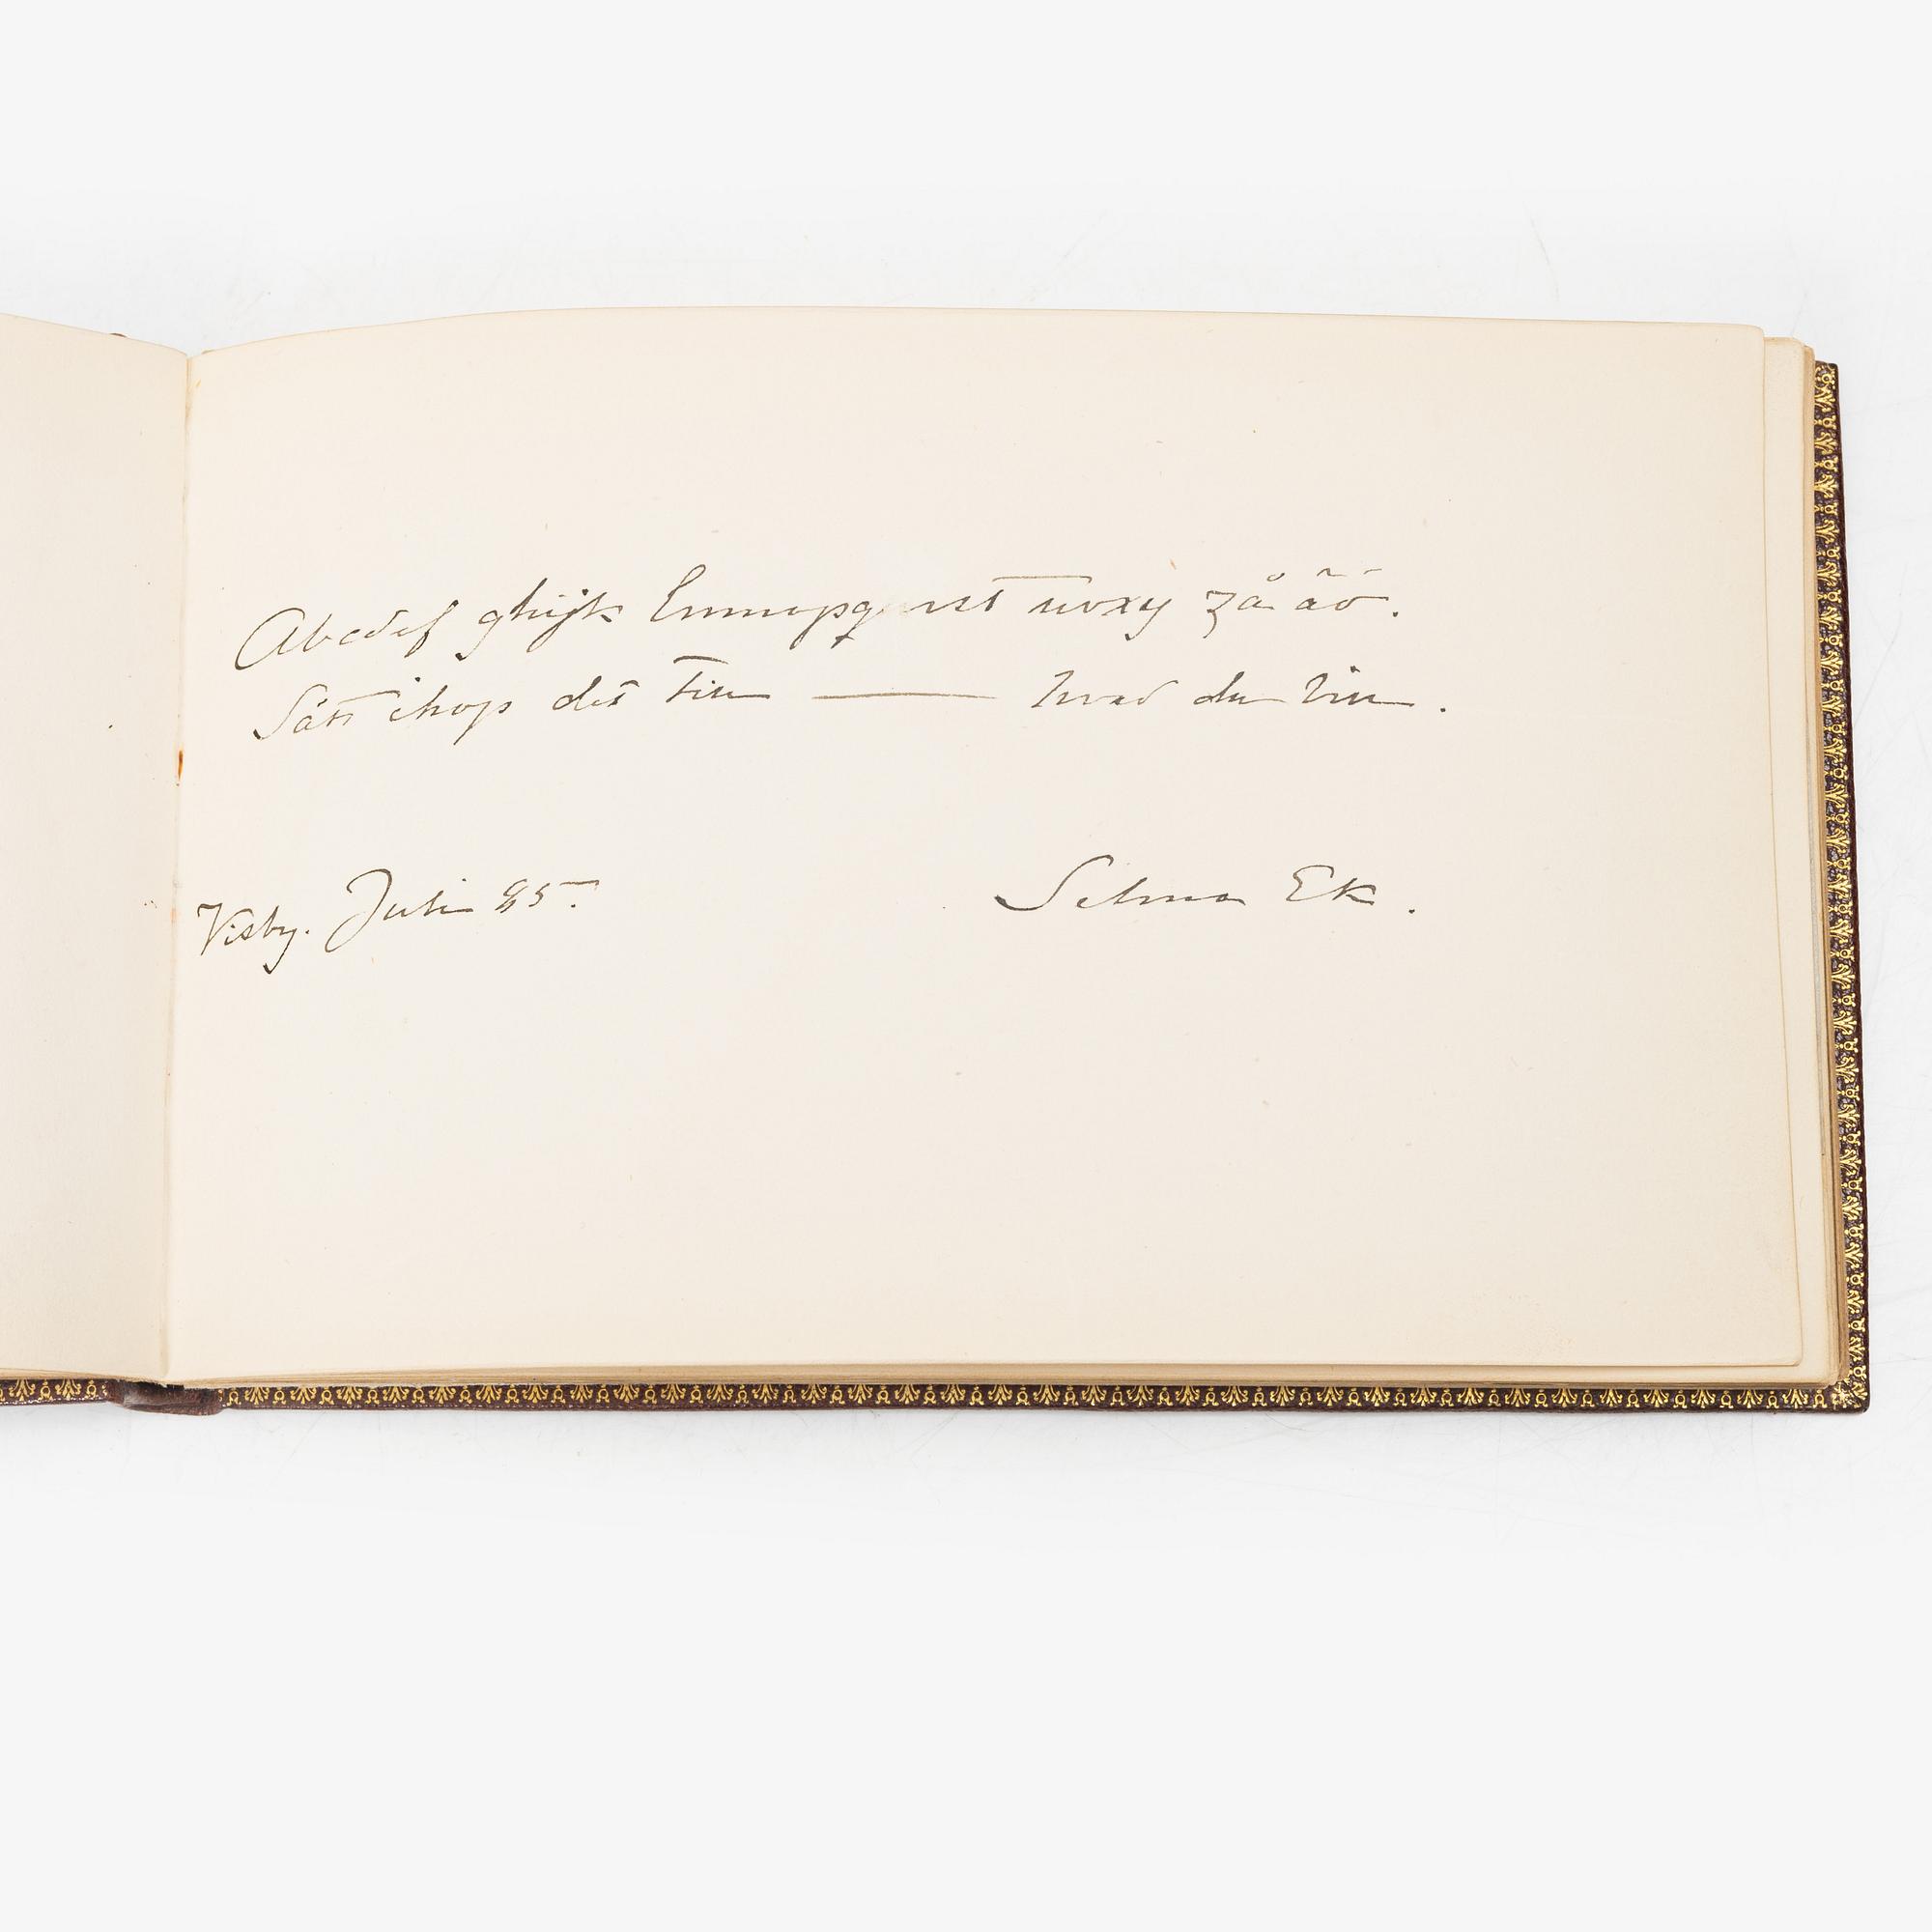 Abcdef ghijk lmnopq rst uvxy zå äö.
Sätt ihop det till — hvad du vill.
Visby. Juli 85.
Selma Ek.